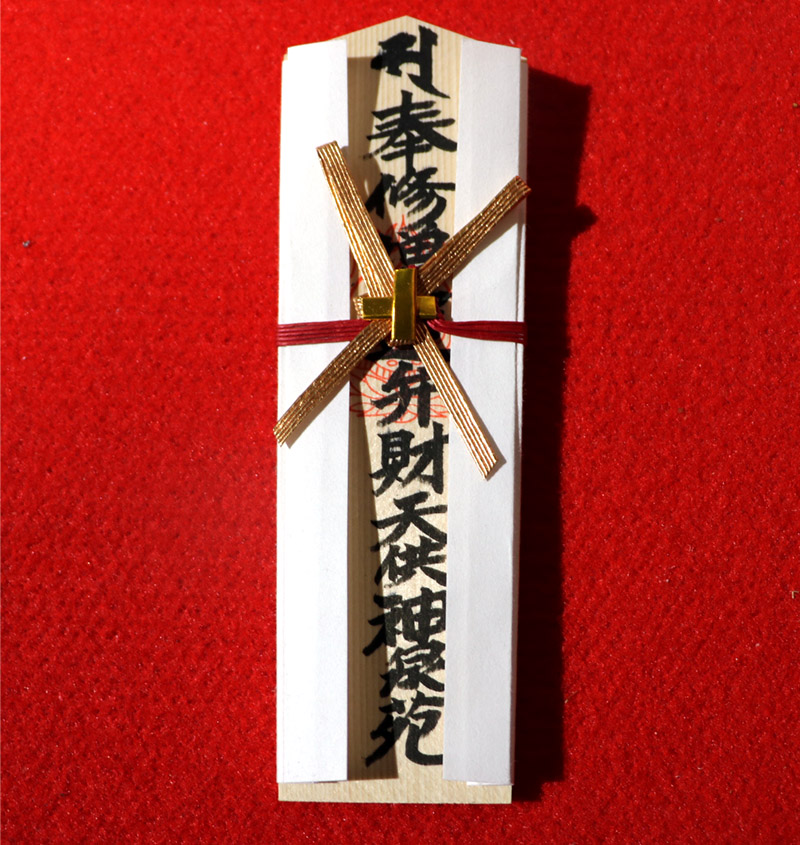 奉修弁財天供神泉苑